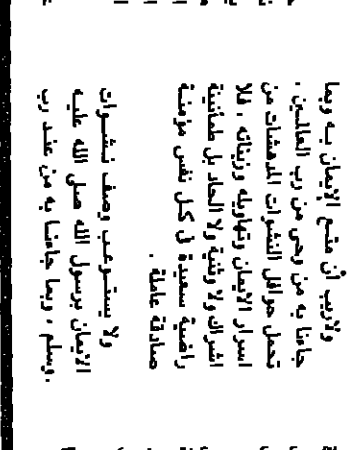 ولاريب أن متـع الإيمان بـه وبما
جاءنا به من وحى من رب العالمـين .
تحمل حوافل النشوات المدهشات من
اسرار الايمان وتهاويله وزيناته . فلا
اشراك ولا وثنية ولا الحاد بل طمأنينة
راضية سعيدة فى كـل نفس مؤمنـة
صادقة عاملة .
ولا يستـوعب وصف نـشـوات
الايمان برسول الله صلى الله عليـه
وسلم ، وبما جاءنـا به من عنـد رب